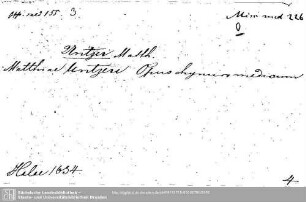 Off. med 155. 3.
Mim med 226
Untzer Matth.
Matthiae Untzeri Opus chymico medicum
Halae 1634.
4.
Sächsische Landesbibliothek -
Staats- und Universitätsbibliothek Dresden